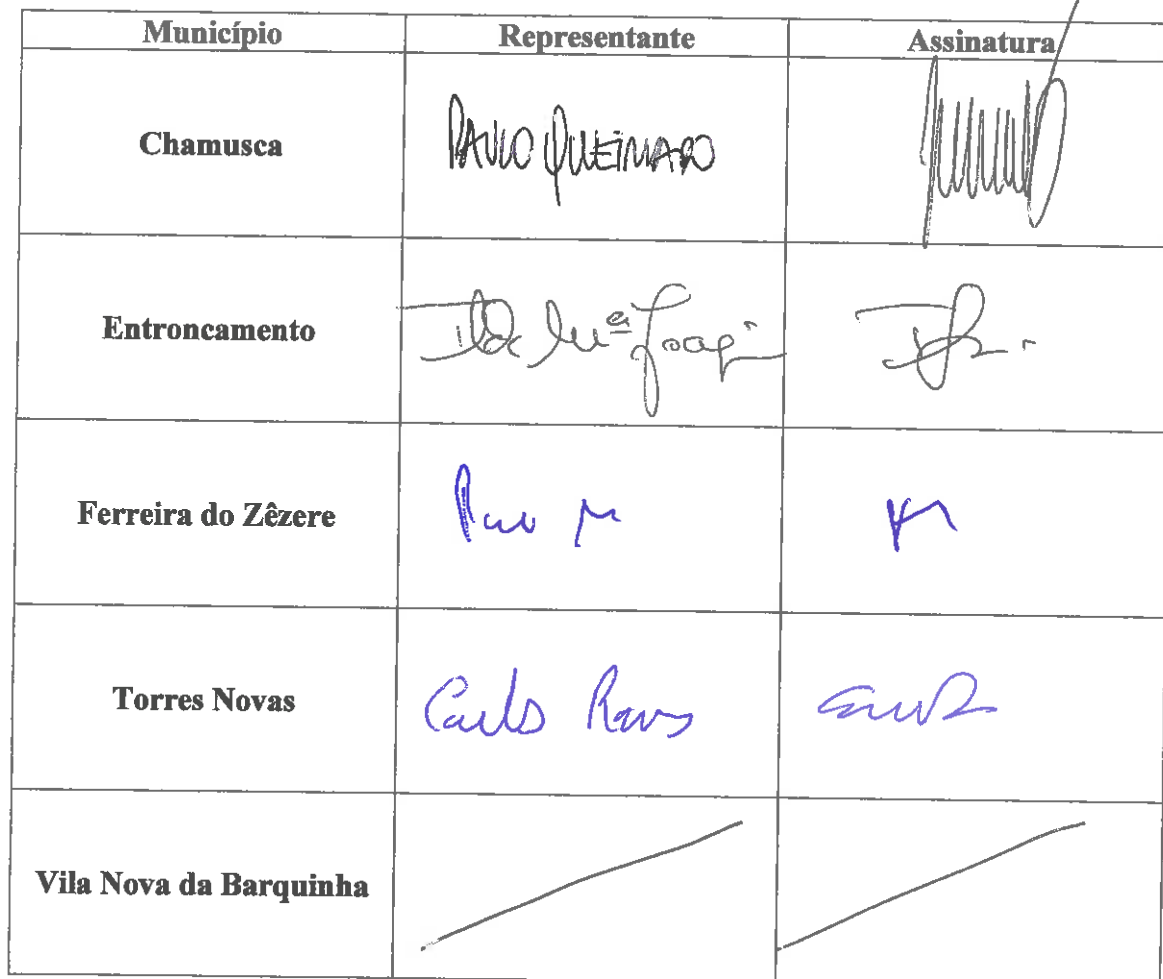 Município Representante Assinatura
Chamusca PAULO QUEIMADO
Entroncamento Ilda Mª Joaqi
Ferreira do Zêzere
Torres Novas Carlos Ramos
Vila Nova da Barquinha